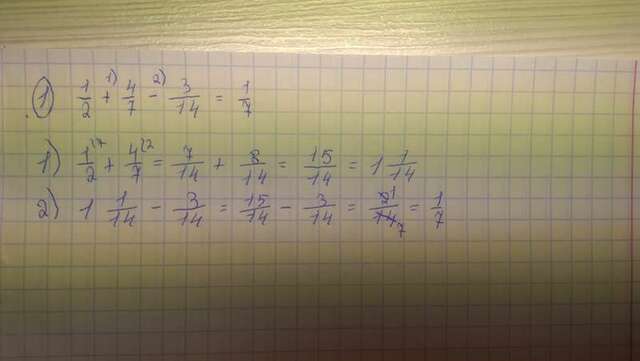 ①
1/2 +¹⁾ 4/7 −²⁾ 3/14 = 1/7
1) 1/2 ¹⁷ + 4/7 ¹² = 7/14 + 8/14 = 15/14 = 1 1/14
2) 1 1/14 − 3/14 = 15/14 − 3/14 = 1/7